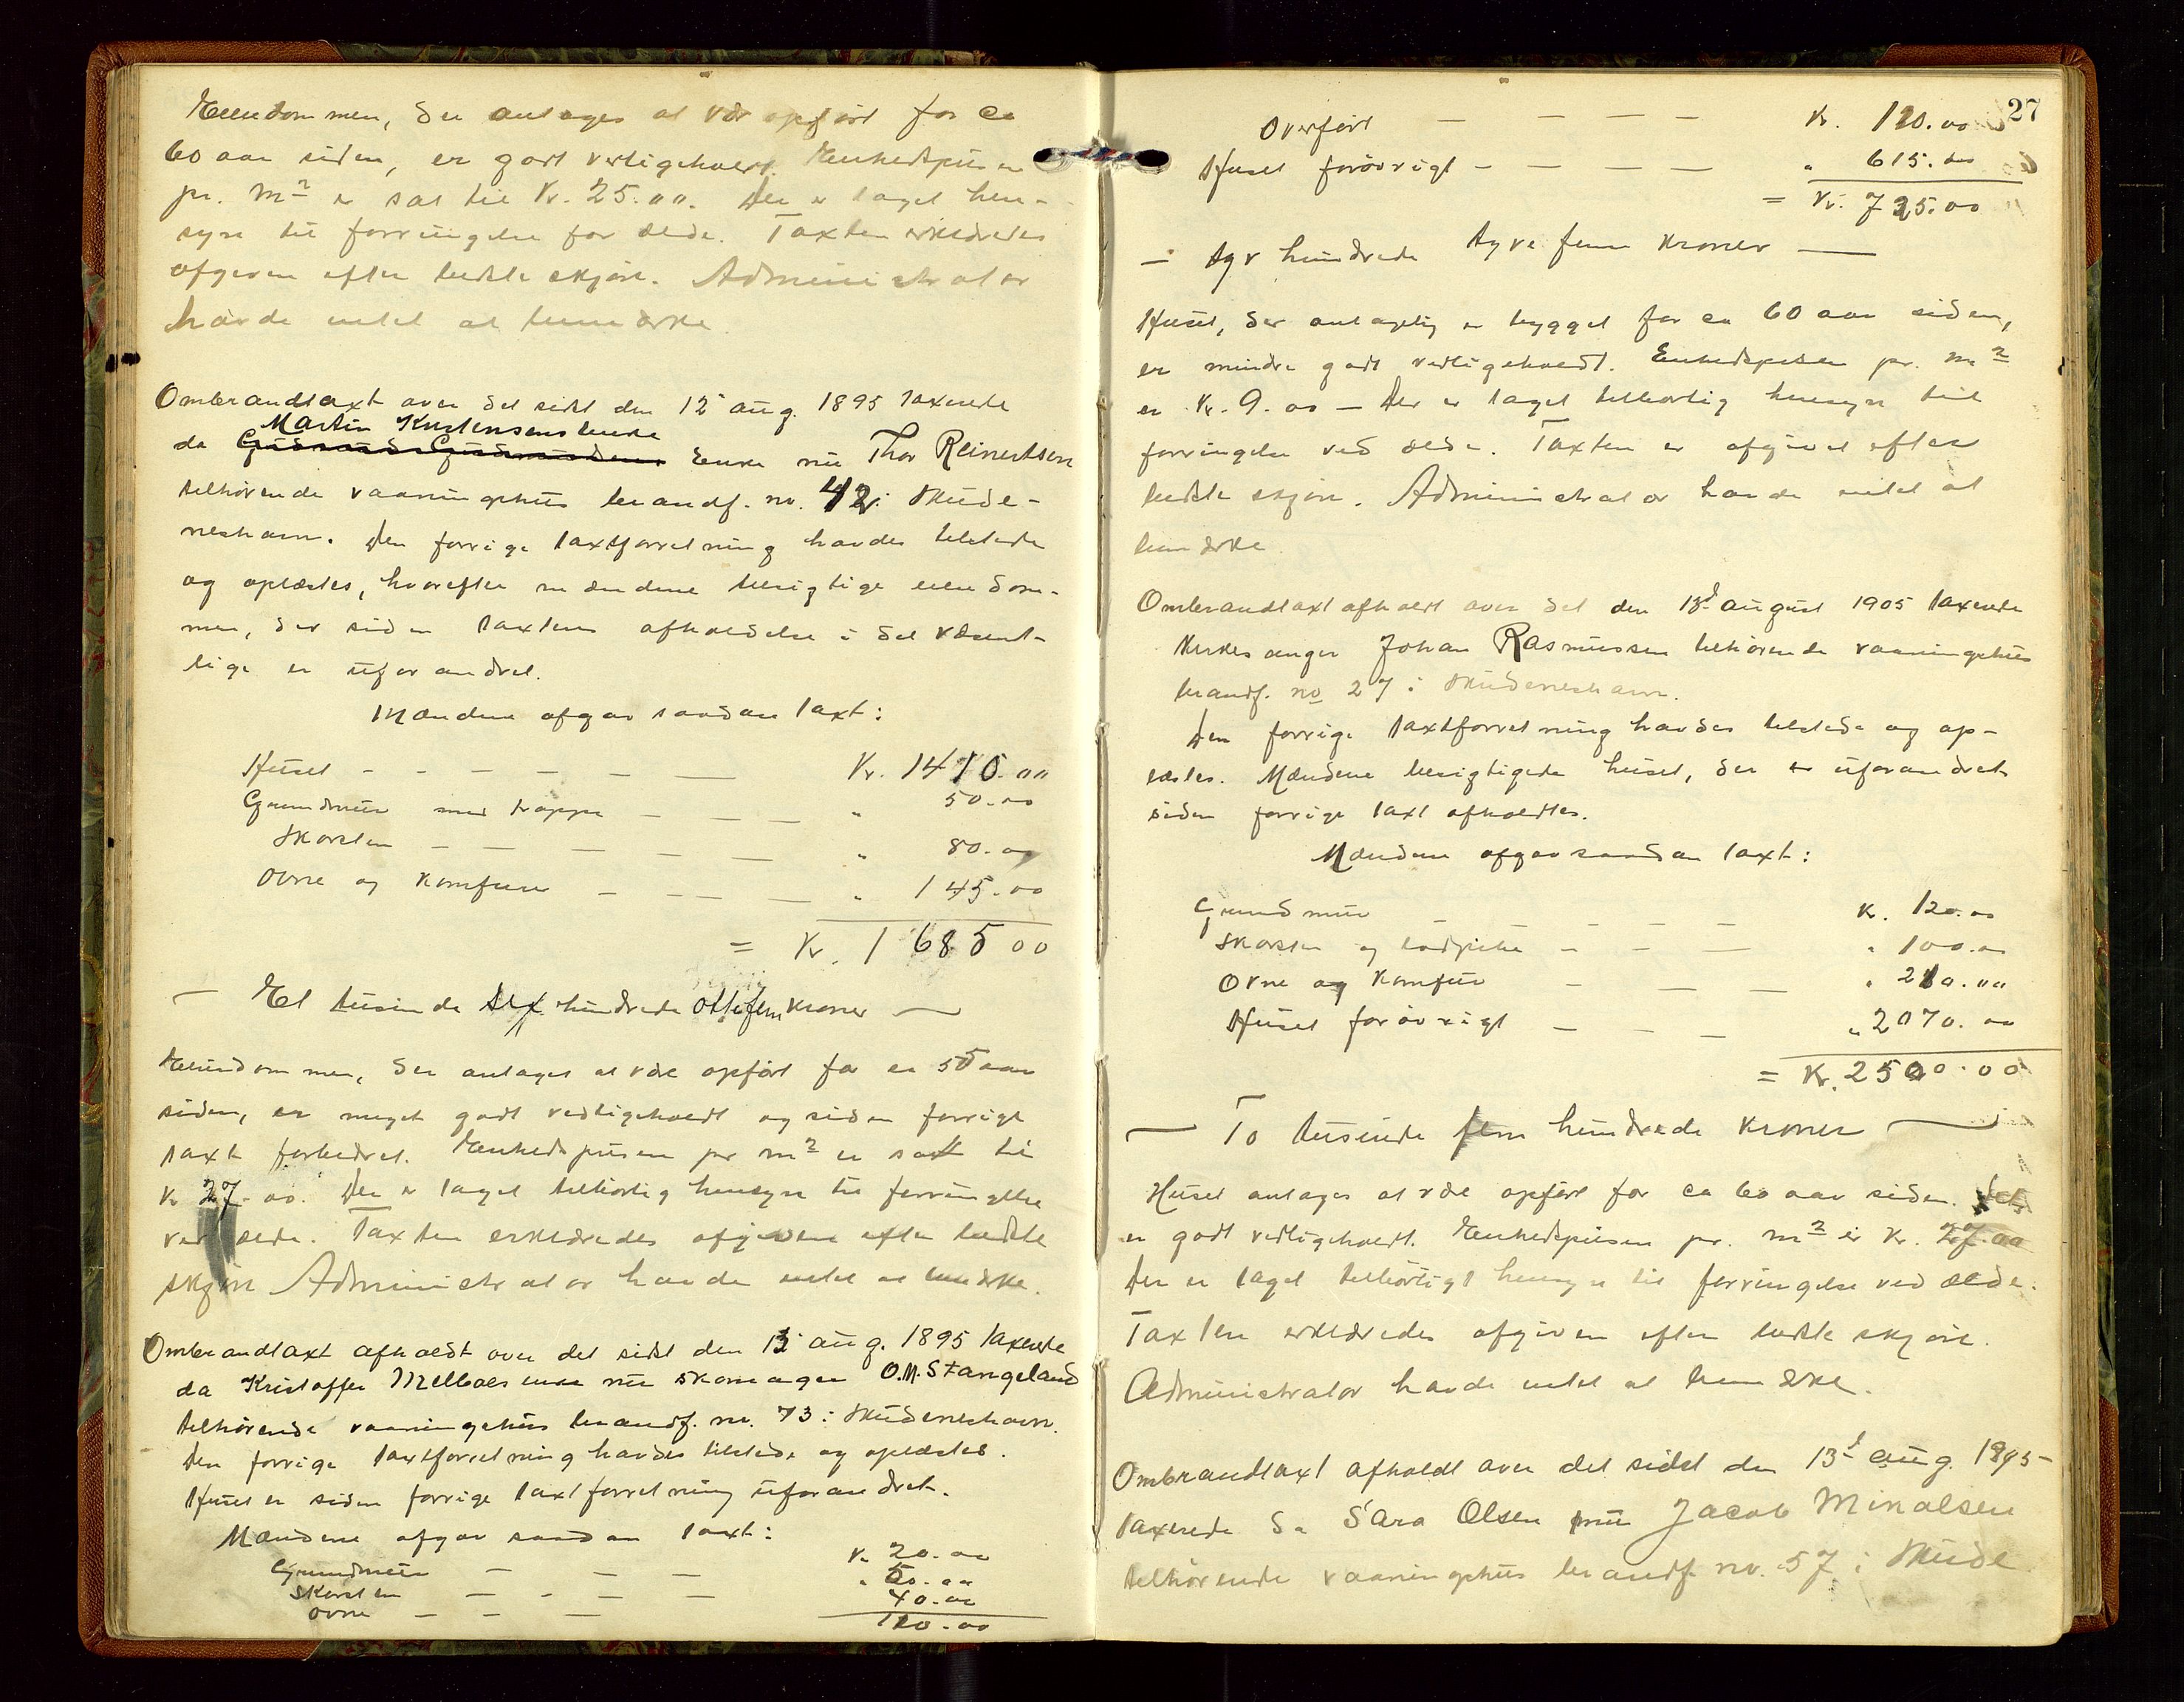 Eiendommen, der antages at vær opført for ca
60 aar siden, er godt vedligeholdt. Enhedsprisen
pr. m² er sat til Kr. 25.00. Der er taget hen-
syn til forringelse for ælde. Taxten erklæredes
afgiven efter bedste skjøn. Administrator
havde intet at bemærke.
Ombrandtaxt over det sidst den 12te aug. 1895 taxerede
Martin Kristensens
da Enke nu Thor Reinertsen
tilhørende vaaningshus brandf. no. 42 i Skude-
neshavn. Den forrige taxtforretning havdes tilstede
og oplæstes, hvorefter mændene besigtige eiendom-
men, der siden taxtens afholdelse i det væsent-
lige er uforandret.
Mændene afgav saadan taxt:
Huset - - - - - - Kr. 1410.00
Grundmur med trappe - - - " 50.00
Skorsten - - - - - " 80.00
Ovne og Komfur - - - - " 145.00
= Kr. 1685 00
- Et tusinde sex hundrede ottifem kroner -
Eiendommen, der antages at være opført for ca 55 aar
siden, er meget godt vedligeholdt og siden forrige
taxt forbedret. Enhedsprisen pr m² er sat til
Kr 27.00. Der er taget tilbørlig hensyn til forringelse
ved ælde. Taxten erklæredes afgiven efter bedste
skjøn Administrator havde intet at bemærke.
Ombrandtaxt afholdt over det sidst den 13de aug. 1895 taxerede
da Kristoffer Melboes enke nu skomager O.M. Stangeland
tilhørende vaaningshus brandf. no. 73 i Skudeneshavn.
Den forrige taxtforretning havdes tilstede og oplæstes.
Huset er siden forrige taxtforretning uforandret.
Mændene afgav saadan taxt:
Grundmur - - - Kr 20.00
Skorsten - - - - " 60.00
Ovne - - - 40.00
120.00
27
Overført - - - - Kr. 120.00
Huset forøvrigt - - - - " 615.00
= Kr. 735.00
- Syv hundrede tyve fem kroner -
Huset, der antagelig er bygget for ca 60 aar siden,
er mindre godt vedligeholdt. Enhedsprisen pr. m²
er Kr. 9.00 - Der er taget tilbørlig hensyn til
forringelse ved ælde. Taxten er afgivet efter
bedste skjøn. Administrator havde intet at
bemærke.
Ombrandtaxt afholdt over det den 13de august 1905 taxerede
Kirkesanger Johan Rasmussen tilhørende vaaningshus
brandf. no 27 i Skudeneshavn.
Den forrige taxtforretning havdes tilstede og op-
læstes. Mændene besigtigede huset, der er uforandret
siden forrige taxt afholdtes.
Mændene afgav saadan taxt:
Grundmur - - - - Kr. 120.00
Skorsten og - - - " 100.00
Ovne og Komfur - - - " 210.00
Huset forøvrigt - - - " 2070.00
= Kr. 2500.00
- To tusinde fem hundrede kroner -
Huset antages at være opført for ca 60 aar siden. Det
er godt vedligeholdt. Enhedsprisen pr. m² er Kr. 27.00
Der er taget tilbørligt hensyn til forringelse ved ælde.
Taxten erklæredes afgiven efter bedste skjøn.
Administrator havde intet at bemærke.
Ombrandtaxt afholdt over det sidst den 13de aug. 1895
taxerede da Sara Olsen nu Jacob Mikalsen
tilhørende vaaningshus brandf. no. 57 i Skude